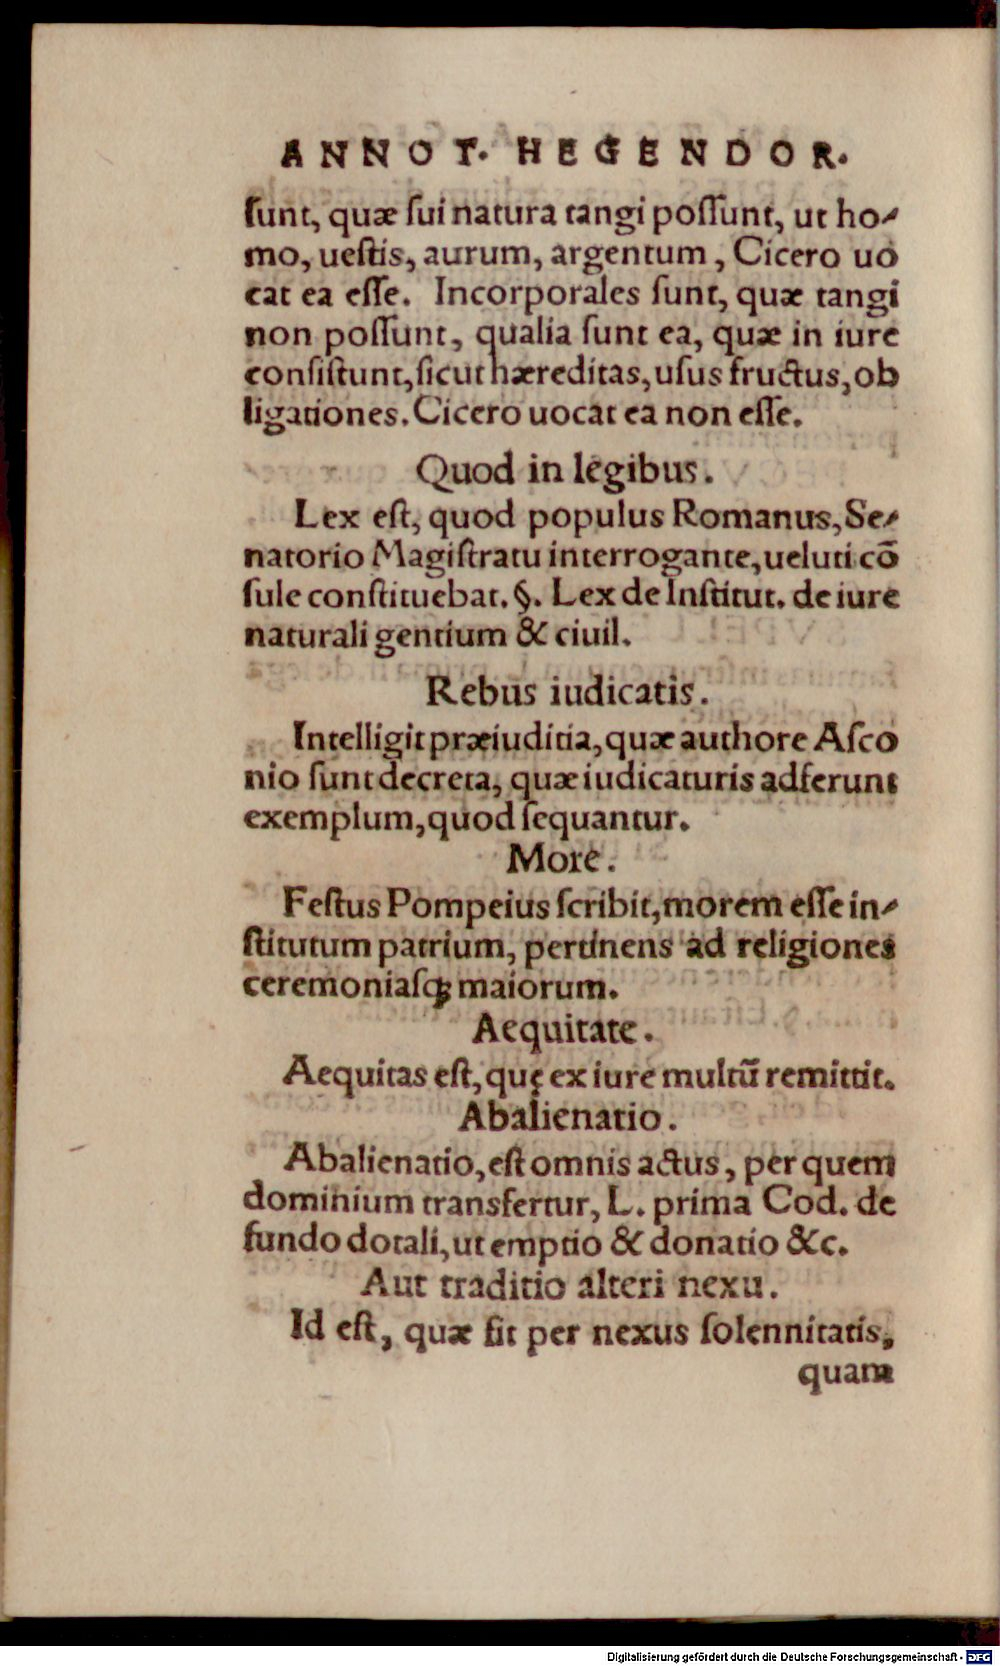 ANNOT. HEGENDOR.
ſunt, quæ ſui natura tangi poſſunt, ut ho-
mo, ueſtis, aurum, argentum, Cicero uo
cat ea eſſe. Incorporales ſunt, quæ tangi
non poſſunt, qualia ſunt ea, quæ in iure
conſiſtunt, ſicut hæreditas, uſus fructus, ob
ligationes. Cicero uocat ea non eſſe.
Quod in legibus.
Lex eſt, quod populus Romanus, Se-
natorio Magiſtratu interrogante, ueluti cõ
ſule conſtituebat. §. Lex de Inſtitut. de iure
naturali gentium & ciuil.
Rebus iudicatis.
Intelligit præiuditia, quæ authore Aſco
nio ſunt decreta, quæ iudicaturis adferunt
exemplum, quod ſequantur.
More.
Feſtus Pompeius ſcribit, morem eſſe in-
ſtitutum patrium, pertinens ad religiones
ceremoniaſqꝫ maiorum.
Aequitate.
Aequitas eſt, quę ex iure multũ remittit.
Abalienatio.
Abalienatio, eſt omnis actus, per quem
dominium transfertur, L. prima Cod. de
fundo dotali, ut emptio & donatio &c.
Aut traditio alteri nexu.
Id eſt, quæ fit per nexus ſolennitatis,
quam
Digitalisierung gefördert durch die Deutsche Forschungsgemeinschaft - DFG